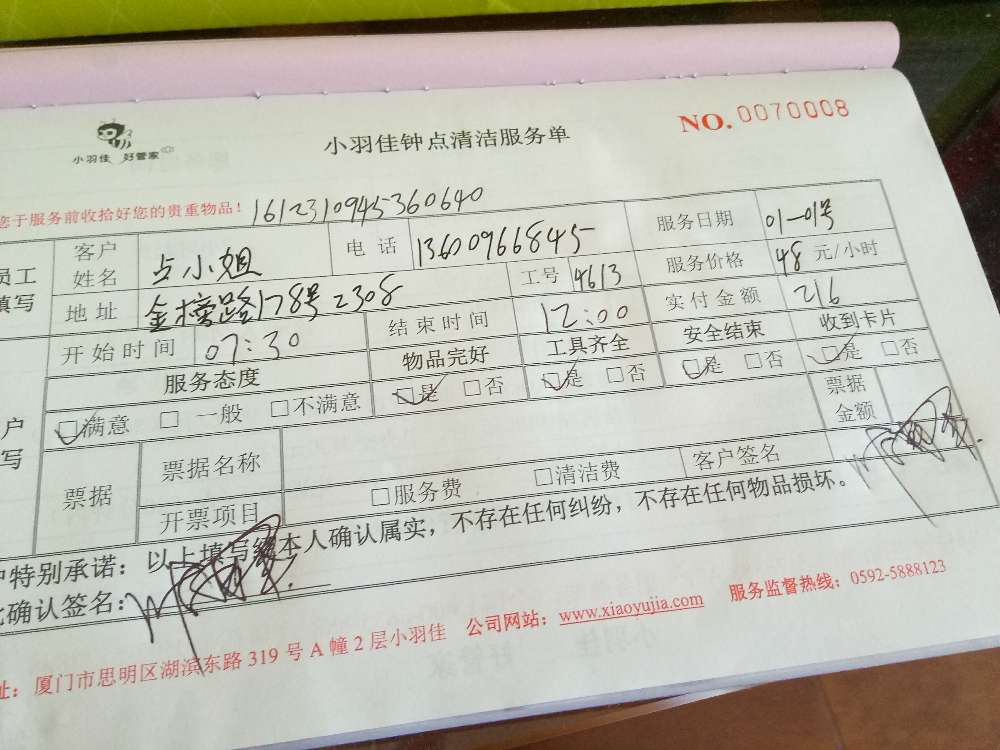 小羽佳 好管家
小羽佳钟点清洁服务单
NO.0070008
您于服务前收拾好您的贵重物品！ 1612310945360640
员工填写 客户姓名 占小姐 电话 13600966845 服务日期 01-01号
地址 金榜路178号2308 工号 4613 服务价格 48 元/小时
开始时间 07:30 结束时间 12:00 实付金额 216
服务态度 物品完好 工具齐全 安全结束 收到卡片
户写 ☑满意 □ 一般 □不满意 ☑是 □否 ☑是 □否 ☑是 □否 ☑是 □否
票据 票据名称 票据金额
开票项目 □服务费 □清洁费 客户签名
户特别承诺：以上填写经本人确认属实，不存在任何纠纷，不存在任何物品损坏。
此确认签名：
址：厦门市思明区湖滨东路 319 号 A 幢 2 层小羽佳 公司网站：www.xiaoyujia.com 服务监督热线：0592-5888123